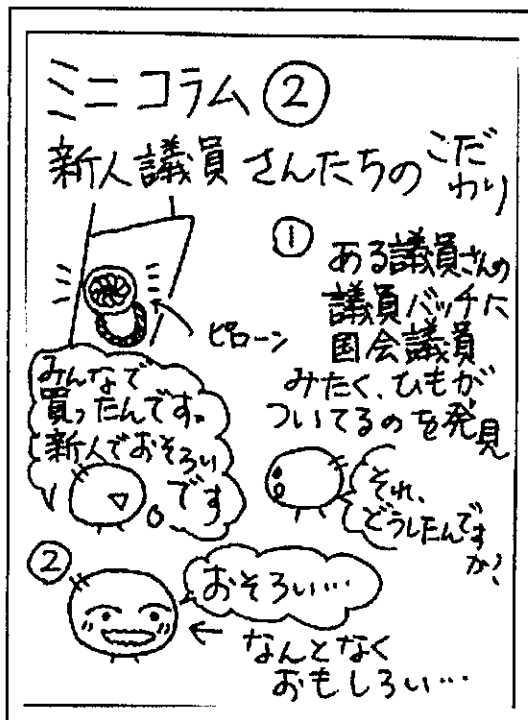 ミニコラム②
新人議員さんたちのこだわり
①
ある議員さんの
議員バッチに
国会議員
みたく、ひもが
ついてるのを発見
ピローン
みんなで
買ったんです。
新人でおそろい
です
それ、
どうしたんです
か?
②
おそろい…
なんとなく
おもしろい…